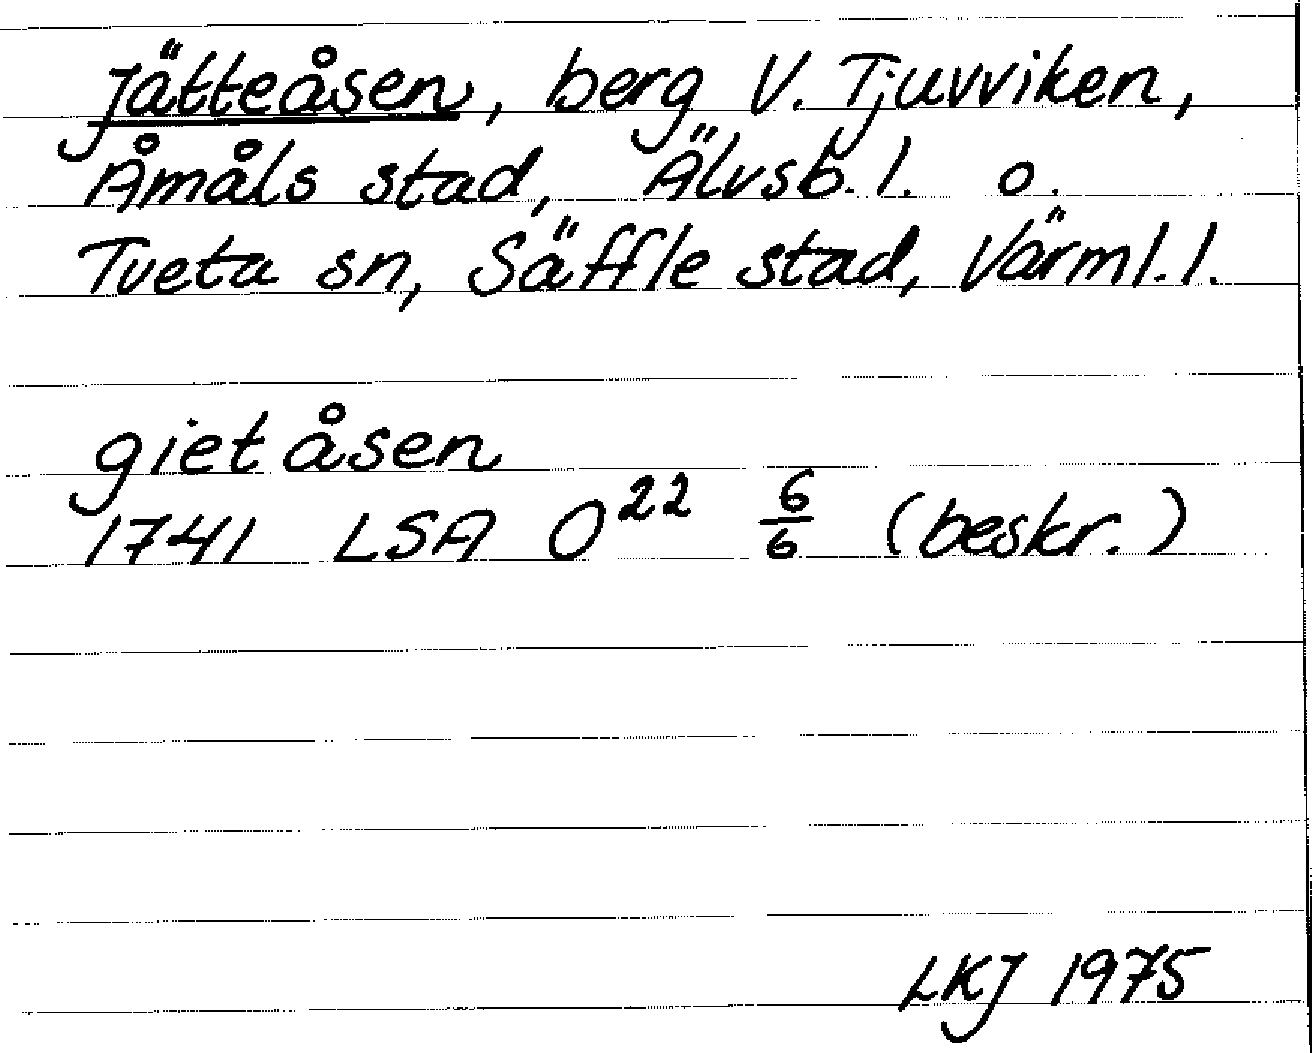 Jätteåsen, berg V. Tjuvviken,
Åmåls stad, Älvsb. l. o.
Tveta sn, Säffle stad, Värml. l.
giet åsen
1741 LSA O²² 6/6 (beskr.)
LKJ 1975